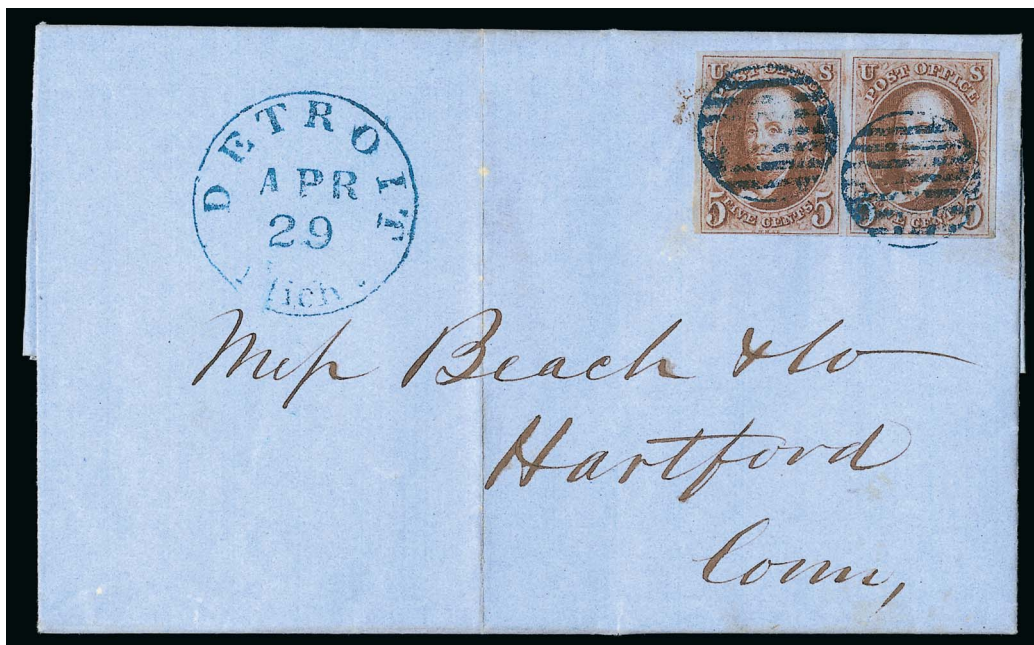 DETROIT
APR
29
Mich.
U S
POST OFFICE
5 FIVE CENTS 5
U S
POST OFFICE
5 FIVE CENTS 5
Mess Beach & Co
Hartford
Conn,